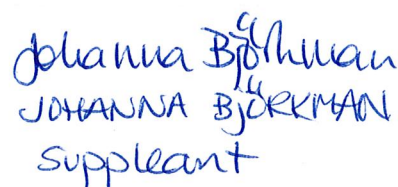 Johanna Björkman
JOHANNA BJÖRKMAN
Suppleant